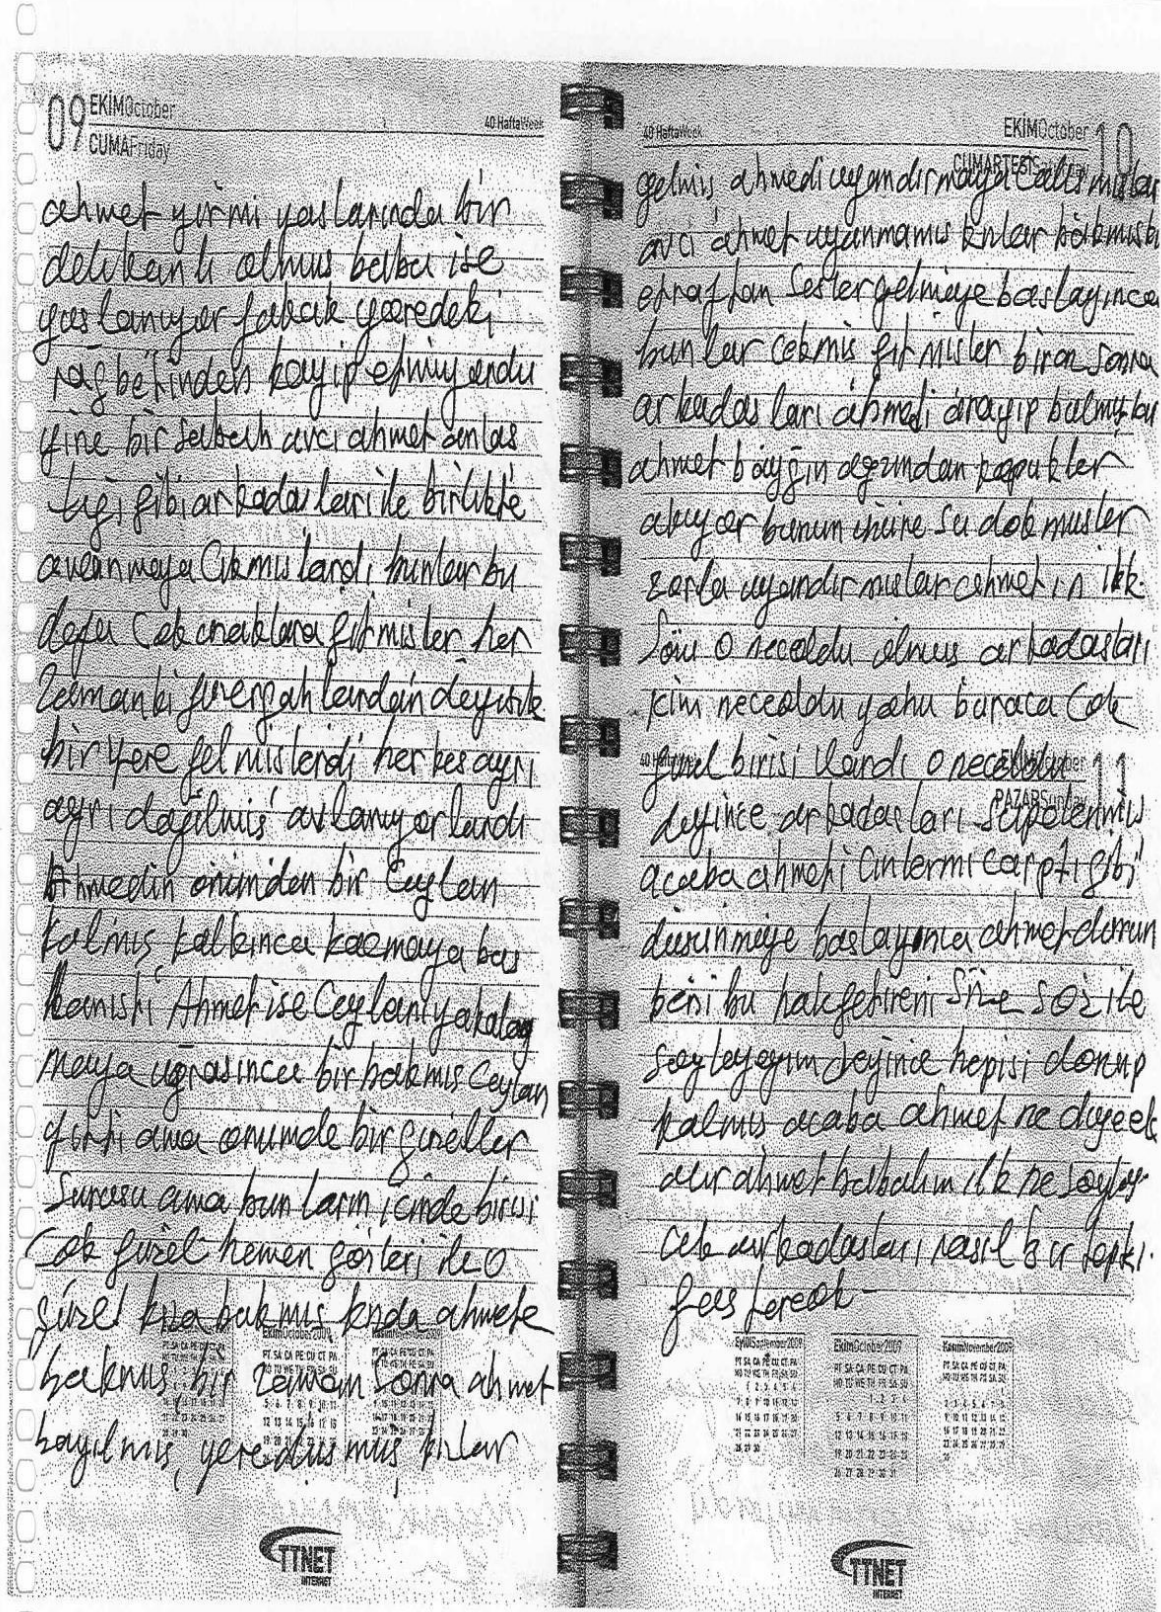 09 EKİM October
CUMA Friday
40 Hafta Week
ahmet yirmi yaslarında bir
delikanlı olmus baba ise
yaslanıyor fakak yöredeki
rağbetinden kayip etmiyordu
yine bir sabah avcı ahmet anlas
tığı gibi arkadasları ile birlikte
avlanmaya Cıkmıslardi bunlar bu
defa Cok uzaklara gitmisler her
Zamanki güzergahlardan deyisik
bir yere gelmislerdi herkes ayrı
ayrı dağılmıs avlanıyorlardı
Ahmedin önünden bir Ceylan
kalmıs kalkınca kacmaya bas
lamıstı Ahmet ise Ceylanı yakalay
maya ugrasınca bir bakmıs Ceylan
gitti ama onumde bir güzeller
Surusu ama bunların icinde birisi
Cok güzel hemen gözleri ile O
güzel kıza bakmıs kızda ahmete
bakmıs, bir zaman sonra ahmet
bayılmıs, yere düsmüs, kızlar
EylülSeptember2009
EkimOctober 2009
KasımNovember2009
TTNET
INTERNET
40 Hafta Week
EKİM October 10
CUMARTESİ
gelmis ahmedi uyandırmaya calısmıslar
avcı ahmet uyanmamıs kızlar bakmıs
etraftan Sesler gelmeye baslayınca
bunlar cekmis gitmisler biraz sonra
arkadasları ahmedi arayıp bulmuslar
ahmet baygın agzından kopukler
akıyor bunun üzüne su dokmusler
zorla uyandırmıslar ahmetin ilk
Sözü O neceoldu olmus arkadasları
kim neceoldu yahu buraca Cok
40 Hafta
11
PAZAR Sunday
güzel birisi Vardı O neceoldu
deyince arkadasları
acaba ahmeti Cinlermi carptı gibi
düsünmeye baslayınca ahmet durun
beni bu hale getireni Size Söz ile
Soyleyeyim deyince hepisi donup
kalmıs acaba ahmet ne diyecek
dur ahmet bakalım ilk ne Soyley
cek arkadasları nasıl bir tepki
gösterecek
EylülSeptember2009
EkimOctober2009
KasımNovember2009
TTNET
INTERNET